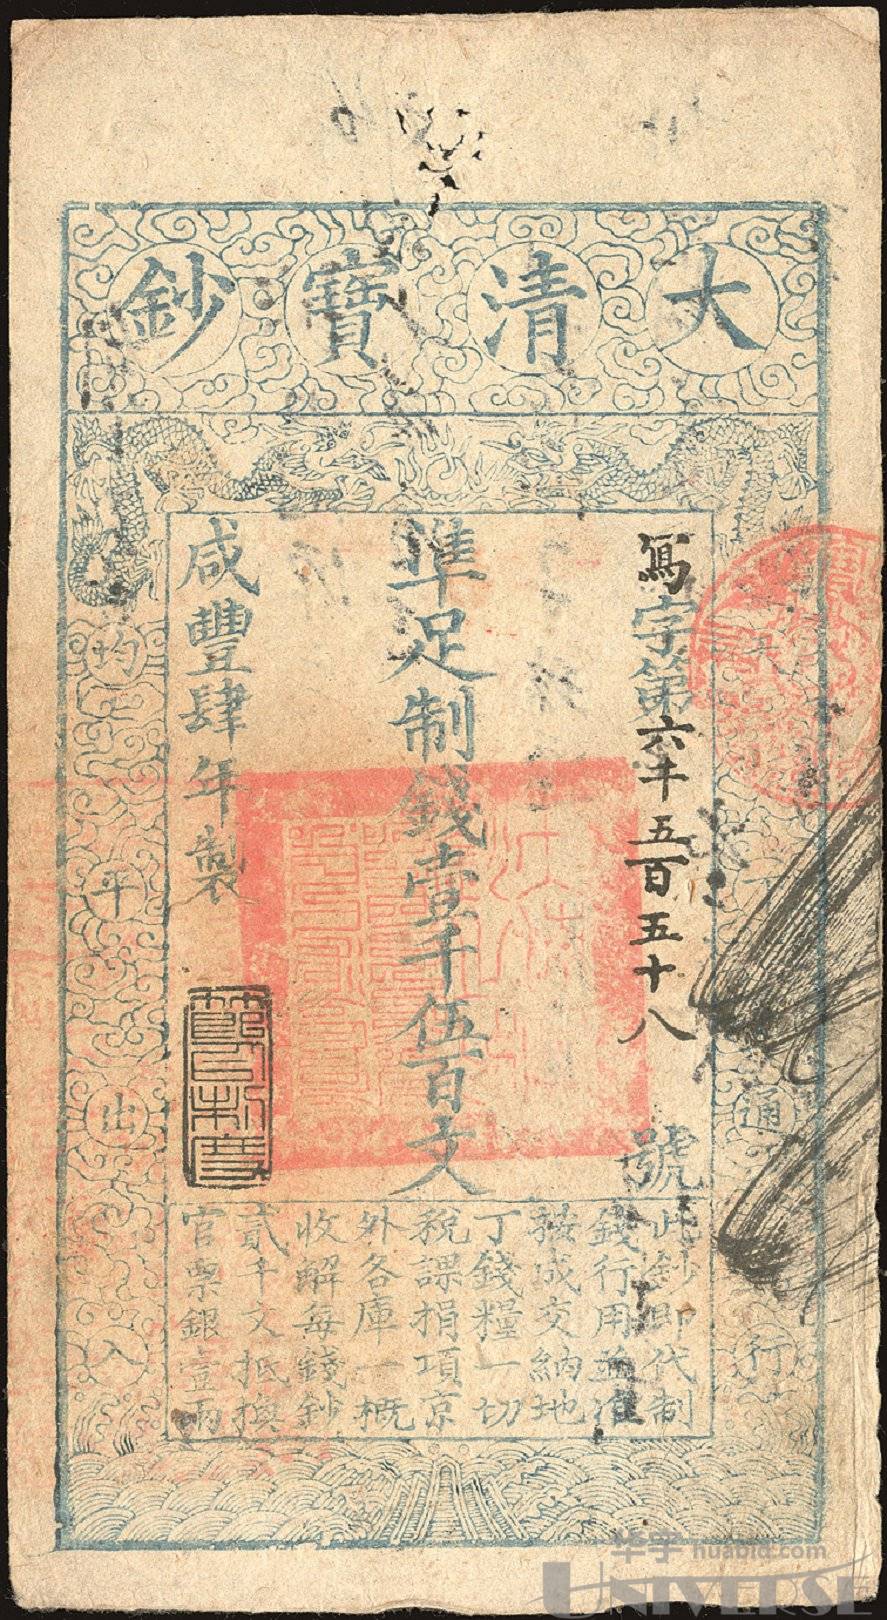 大清寶鈔
寫字第六千五百五十八號
準足制錢壹千伍百文
咸豐肆年製
天下通行
均平出入
此鈔即代制
錢行用並准
按成交納地
丁錢糧一切
稅課捐項京
外各庫一概
收解每錢鈔
貳千文抵換
官票銀壹兩
华宇 huabid.com
UNIVERSE